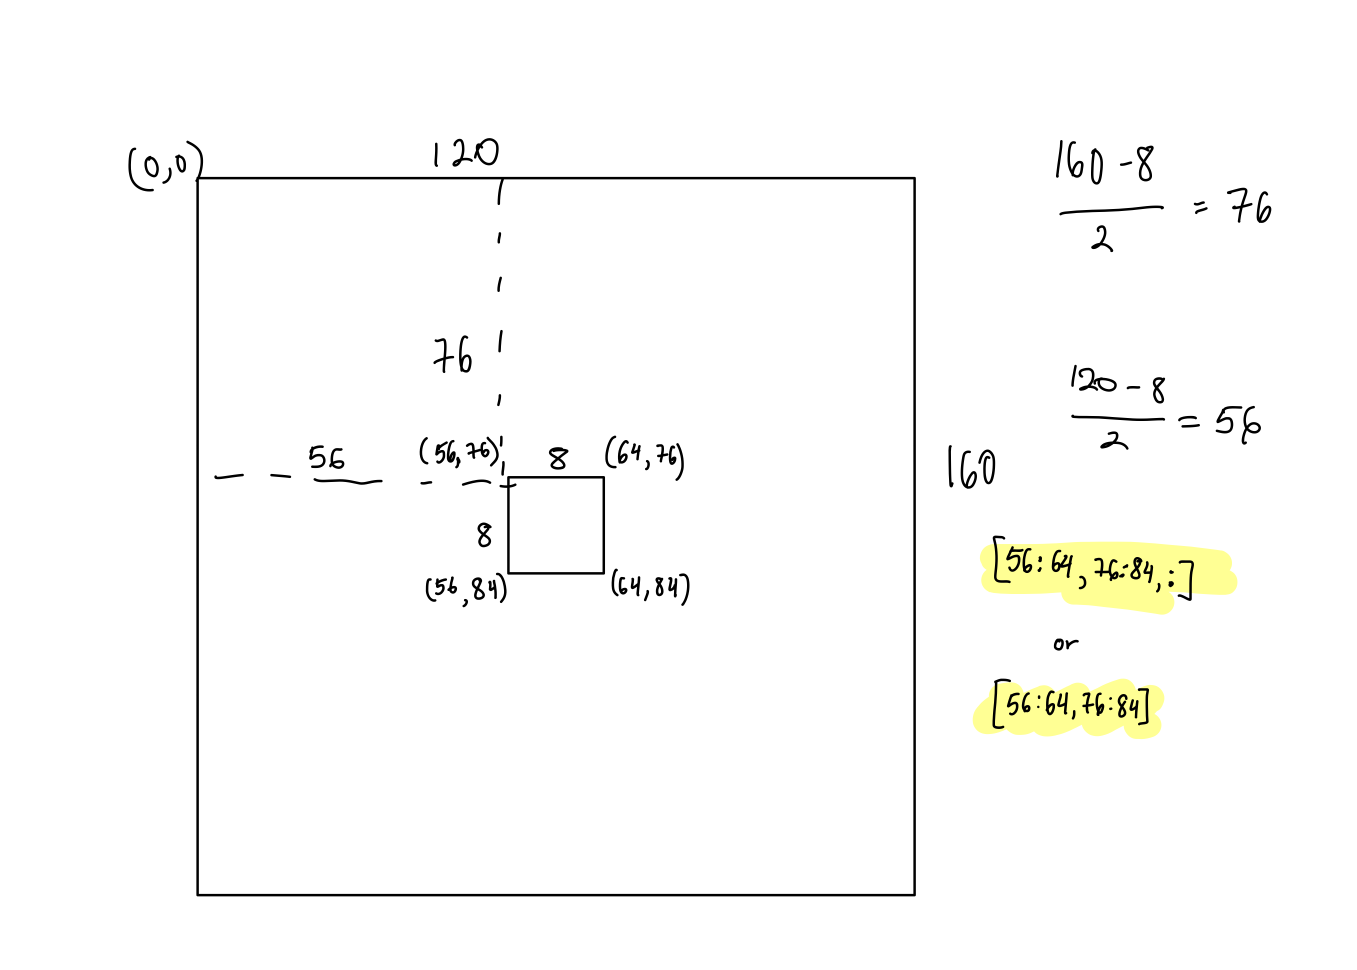 (0,0)
120
76
56
(56,76)
8
(64,76)
8
(56,84)
(64,84)
160
160 - 8
2
= 76
120 - 8
2
= 56
[56:64, 76:84, :]
or
[56:64, 76:84]